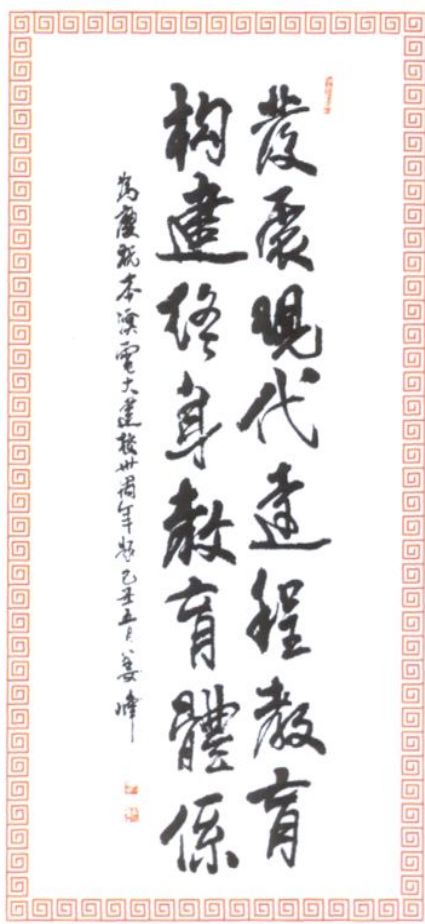 發展現代遠程教育
構建終身教育體係
為慶祝本溪電大建校卅周年題己丑五月姜峰